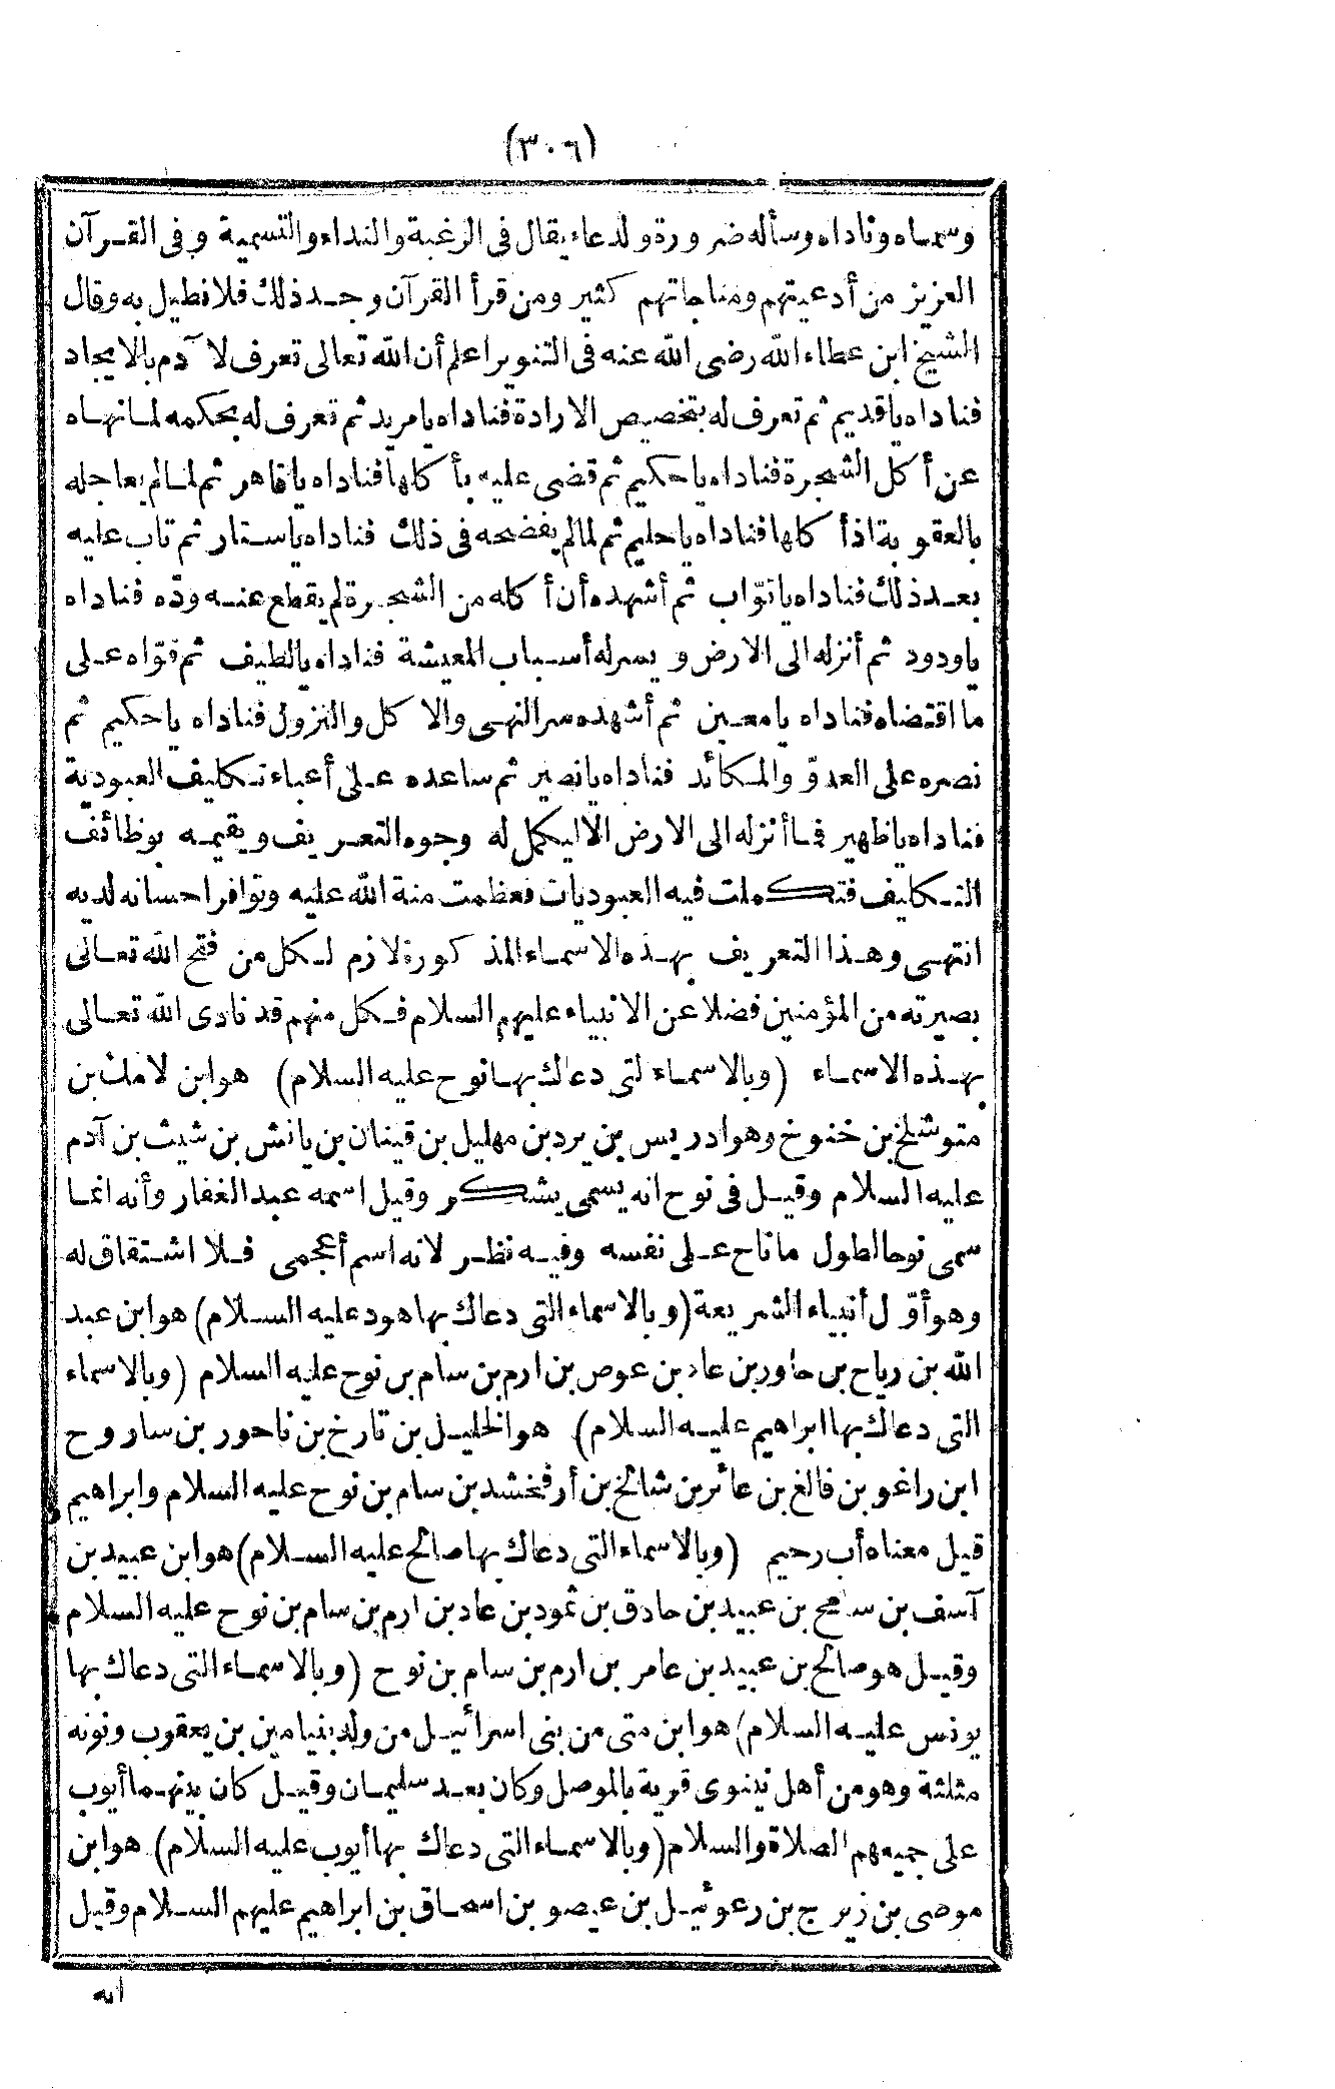 (٣٠٦)
وسمـاه وناداه وسأله ضرورة ولدعاء يقال فى الرغبة والنداء والتسمية وفى القـرآن
العزيز من أدعيتهم ومناجاتهم كثير ومن قرأ القرآن وجـد ذلك فلا نطيل به وقال
الشيخ ابن عطاء الله رضى الله عنه فى التنوير اعلم أن الله تعالى تعرف لا آدم بالايجاد
فناداه ياقديم ثم تعرف له بتخصيص الارادة فناداه يامريد ثم تعرف له بحكمه لمـا نهـاه
عن أكل الشجرة فناداه ياحكيم ثم قضى عليه بأكلها فناداه ياقاهر ثم لمـا لم يعاجله
بالعقوبة اذ أكلها فناداه ياحليم ثم لما لم يفضحه فى ذلك فناداه ياسـتار ثم تاب عليه
بعـد ذلك فناداه ياتوّاب ثم أشهده أن أكله من الشجـرة لم يقطع عنـه ودّه فناداه
ياودود ثم أنزله الى الارض ويسر له أسـباب المعيشة فناداه يالطيف ثم قوّاه عـلى
ما اقتضاه فناداه يامعـين ثم أشهده سر النهـى والاكل والنزول فناداه ياحكيم ثم
نصره على العدوّ والمـكائد فناداه يانصير ثم ساعده عـلى أعباء تـكليف العبودية
فناداه ياظهير فمـا أنزله الى الارض الا ليكمل له وجوه التعـريف ويقيمـه بوظائف
التـكليف فتكملت فيه العبوديات فعظمت منة الله عليه وتوافر احسانه لديه
انتهـى وهـذا التعريف بهـذه الاسمـاء المذكورة لازم لـكل من فتح الله تعـالى
بصيرته من المؤمنين فضلا عن الانبياء عليهم السلام فـكل منهم قد نادى الله تعـالى
بهـذه الاسمـاء (وبالاسمـاء لتى دعاك بهـا نوح عليه السلام) هو ابن لامك بن
متوشلخ بن خنوخ وهو ادريس بن يرد بن مهليل بن قينان بن يانش بن شيث بن آدم
عليه السلام وقيـل فى نوح انه يسمى يشكر وقيل اسمه عبد الغفار وأنه انمـا
سمى نوحا لطول ماناح عـلى نفسه وفيـه نظـر لانه اسم أعجمى فـلا اشـتقاق له
وهو أوّل أنبياء الشريعة (وبالاسماء التى دعاك بها هود عليه السـلام) هو ابن عبد
الله بن رياح بن حاور بن عاد بن عوص بن ارم بن سام بن نوح عليه السلام (وبالاسماء
التى دعاك بها ابراهيم عليـه السلام) هو الخليـل بن تارخ بن ناحور بن ساروح
ابن راغو بن فالغ بن عائر بن شالخ بن أرفخشد بن سام بن نوح عليه السلام وابراهيم
قيـل معناه أب رحيم (وبالاسماء التى دعاك بها صالح عليه السـلام) هو ابن عبيد بن
آسف بن سامح بن عبيد بن حادق بن ثمود بن عاد بن ارم بن سام بن نوح عليه السلام
وقيـل هو صالح بن عبيد بن عامر بن ارم بن سام بن نوح (وبالاسمـاء التى دعاك بها
يونس عليـه السلام) هو ابن متى من بنى اسرائيـل من ولد بنيامين بن يعقوب ونونه
مثلثة وهو من أهل نينوى قرية بالموصل وكان بعـد سليمـان وقيـل كان بينهـما أيوب
على جميعهم الصلاة والسلام (وبالاسمـاء التى دعاك بها أيوب عليه السلام) هو ابن
موصى بن زيرج بن رعوئيـل بن عيصو بن اسحـاق بن ابراهيم عليهم السـلام وقيل
انه